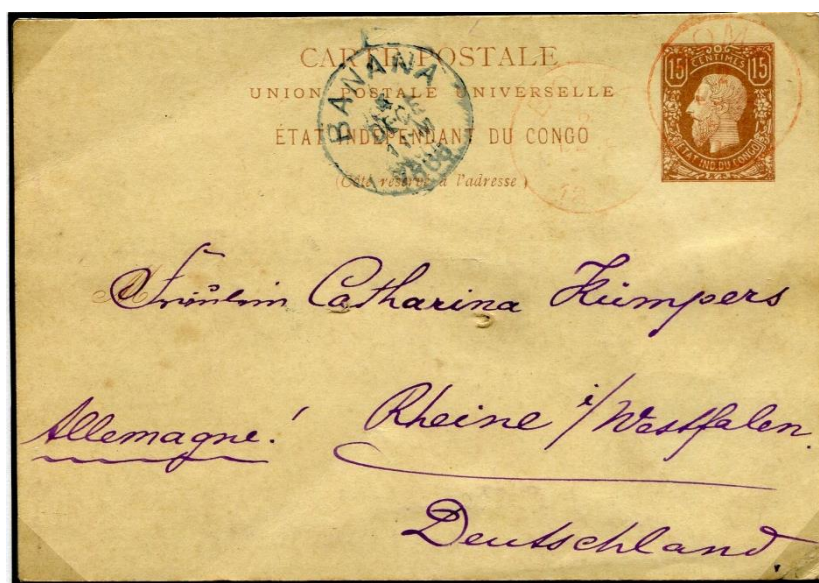 CARTE POSTALE
UNION POSTALE UNIVERSELLE
ÉTAT INDÉPENDANT DU CONGO
(Côté réservé à l'adresse)
15 CENTIMES 15
ETAT IND. DU CONGO
BANANA
DECE
Fräulein Catharina Kümpers
Allemagne! Rheine i/Westfalen.
Deutschland.